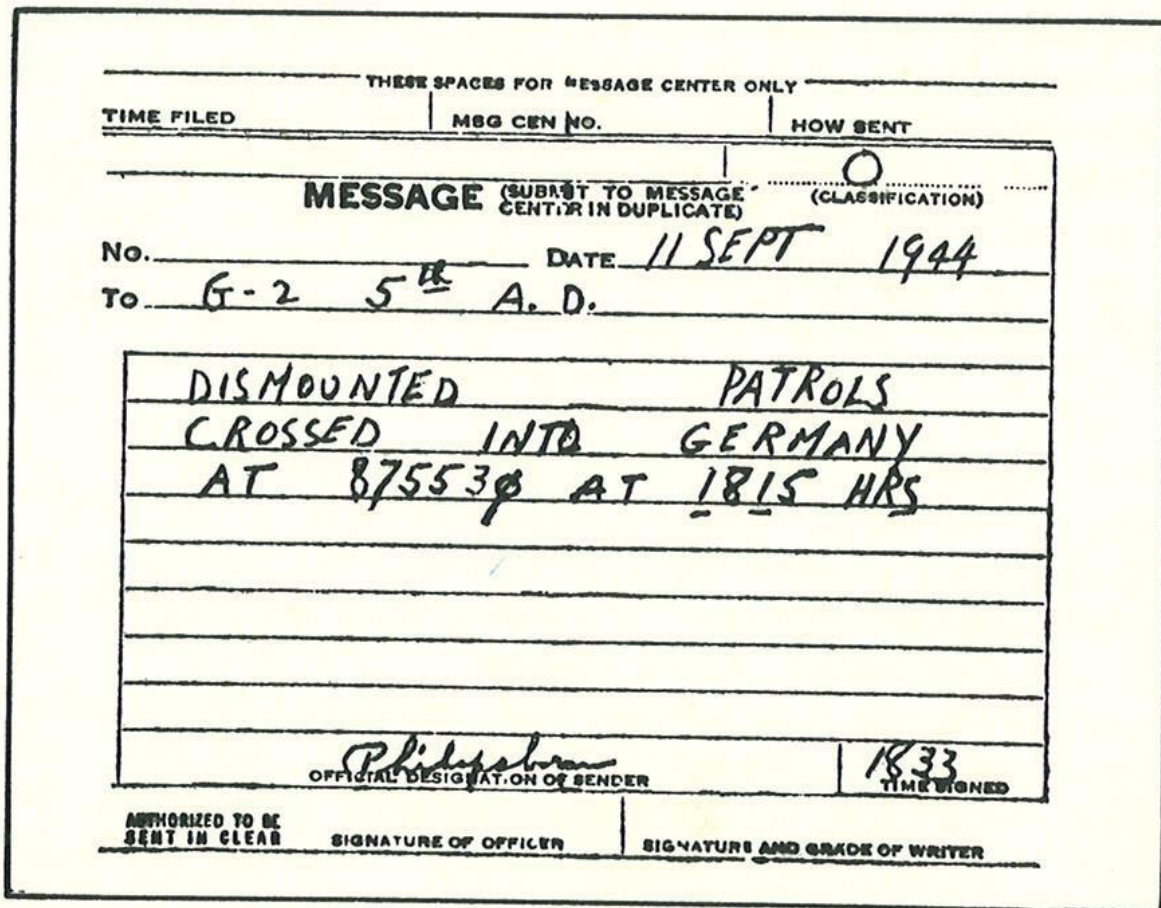 THESE SPACES FOR MESSAGE CENTER ONLY
TIME FILED MSG CEN NO. HOW SENT
O
MESSAGE (SUBMIT TO MESSAGE CENTER IN DUPLICATE) (CLASSIFICATION)
No. DATE 11 SEPT 1944
To G-2 5th A. D.
DISMOUNTED PATROLS
CROSSED INTO GERMANY
AT 875530 AT 1815 HRS
Philipsborn 1833
OFFICIAL DESIGNATION OF SENDER TIME SIGNED
AUTHORIZED TO BE SENT IN CLEAR SIGNATURE OF OFFICER SIGNATURE AND GRADE OF WRITER